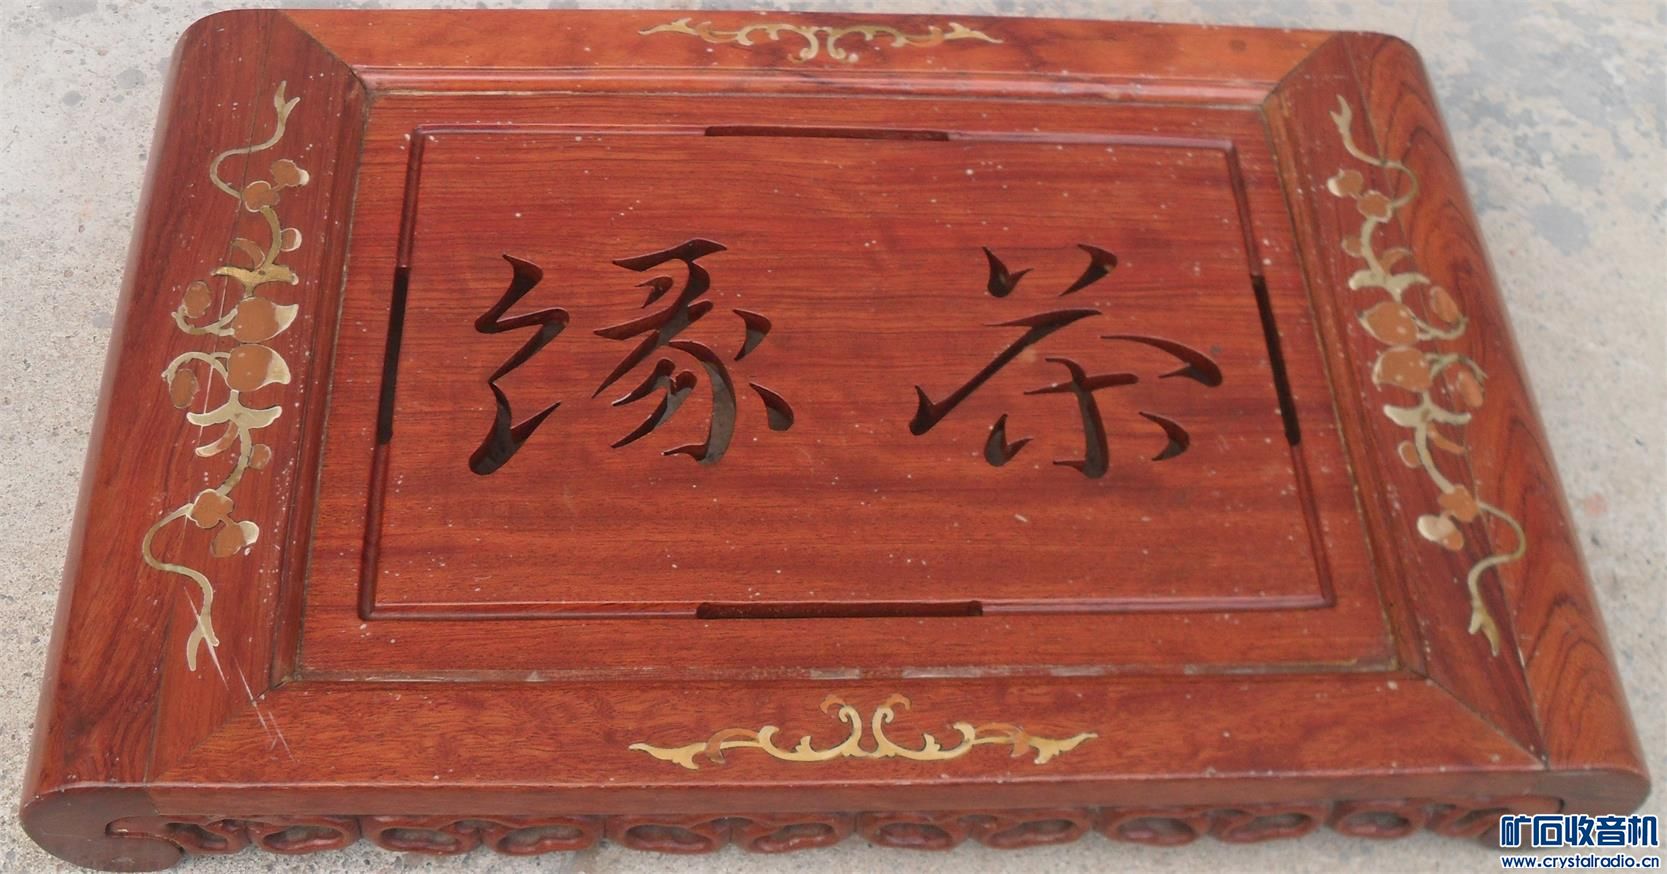 茶缘
矿石收音机
www.crystalradio.cn